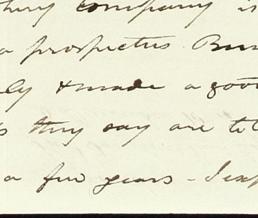 company is
a prospectus
& made a good
they say are to
a few years -